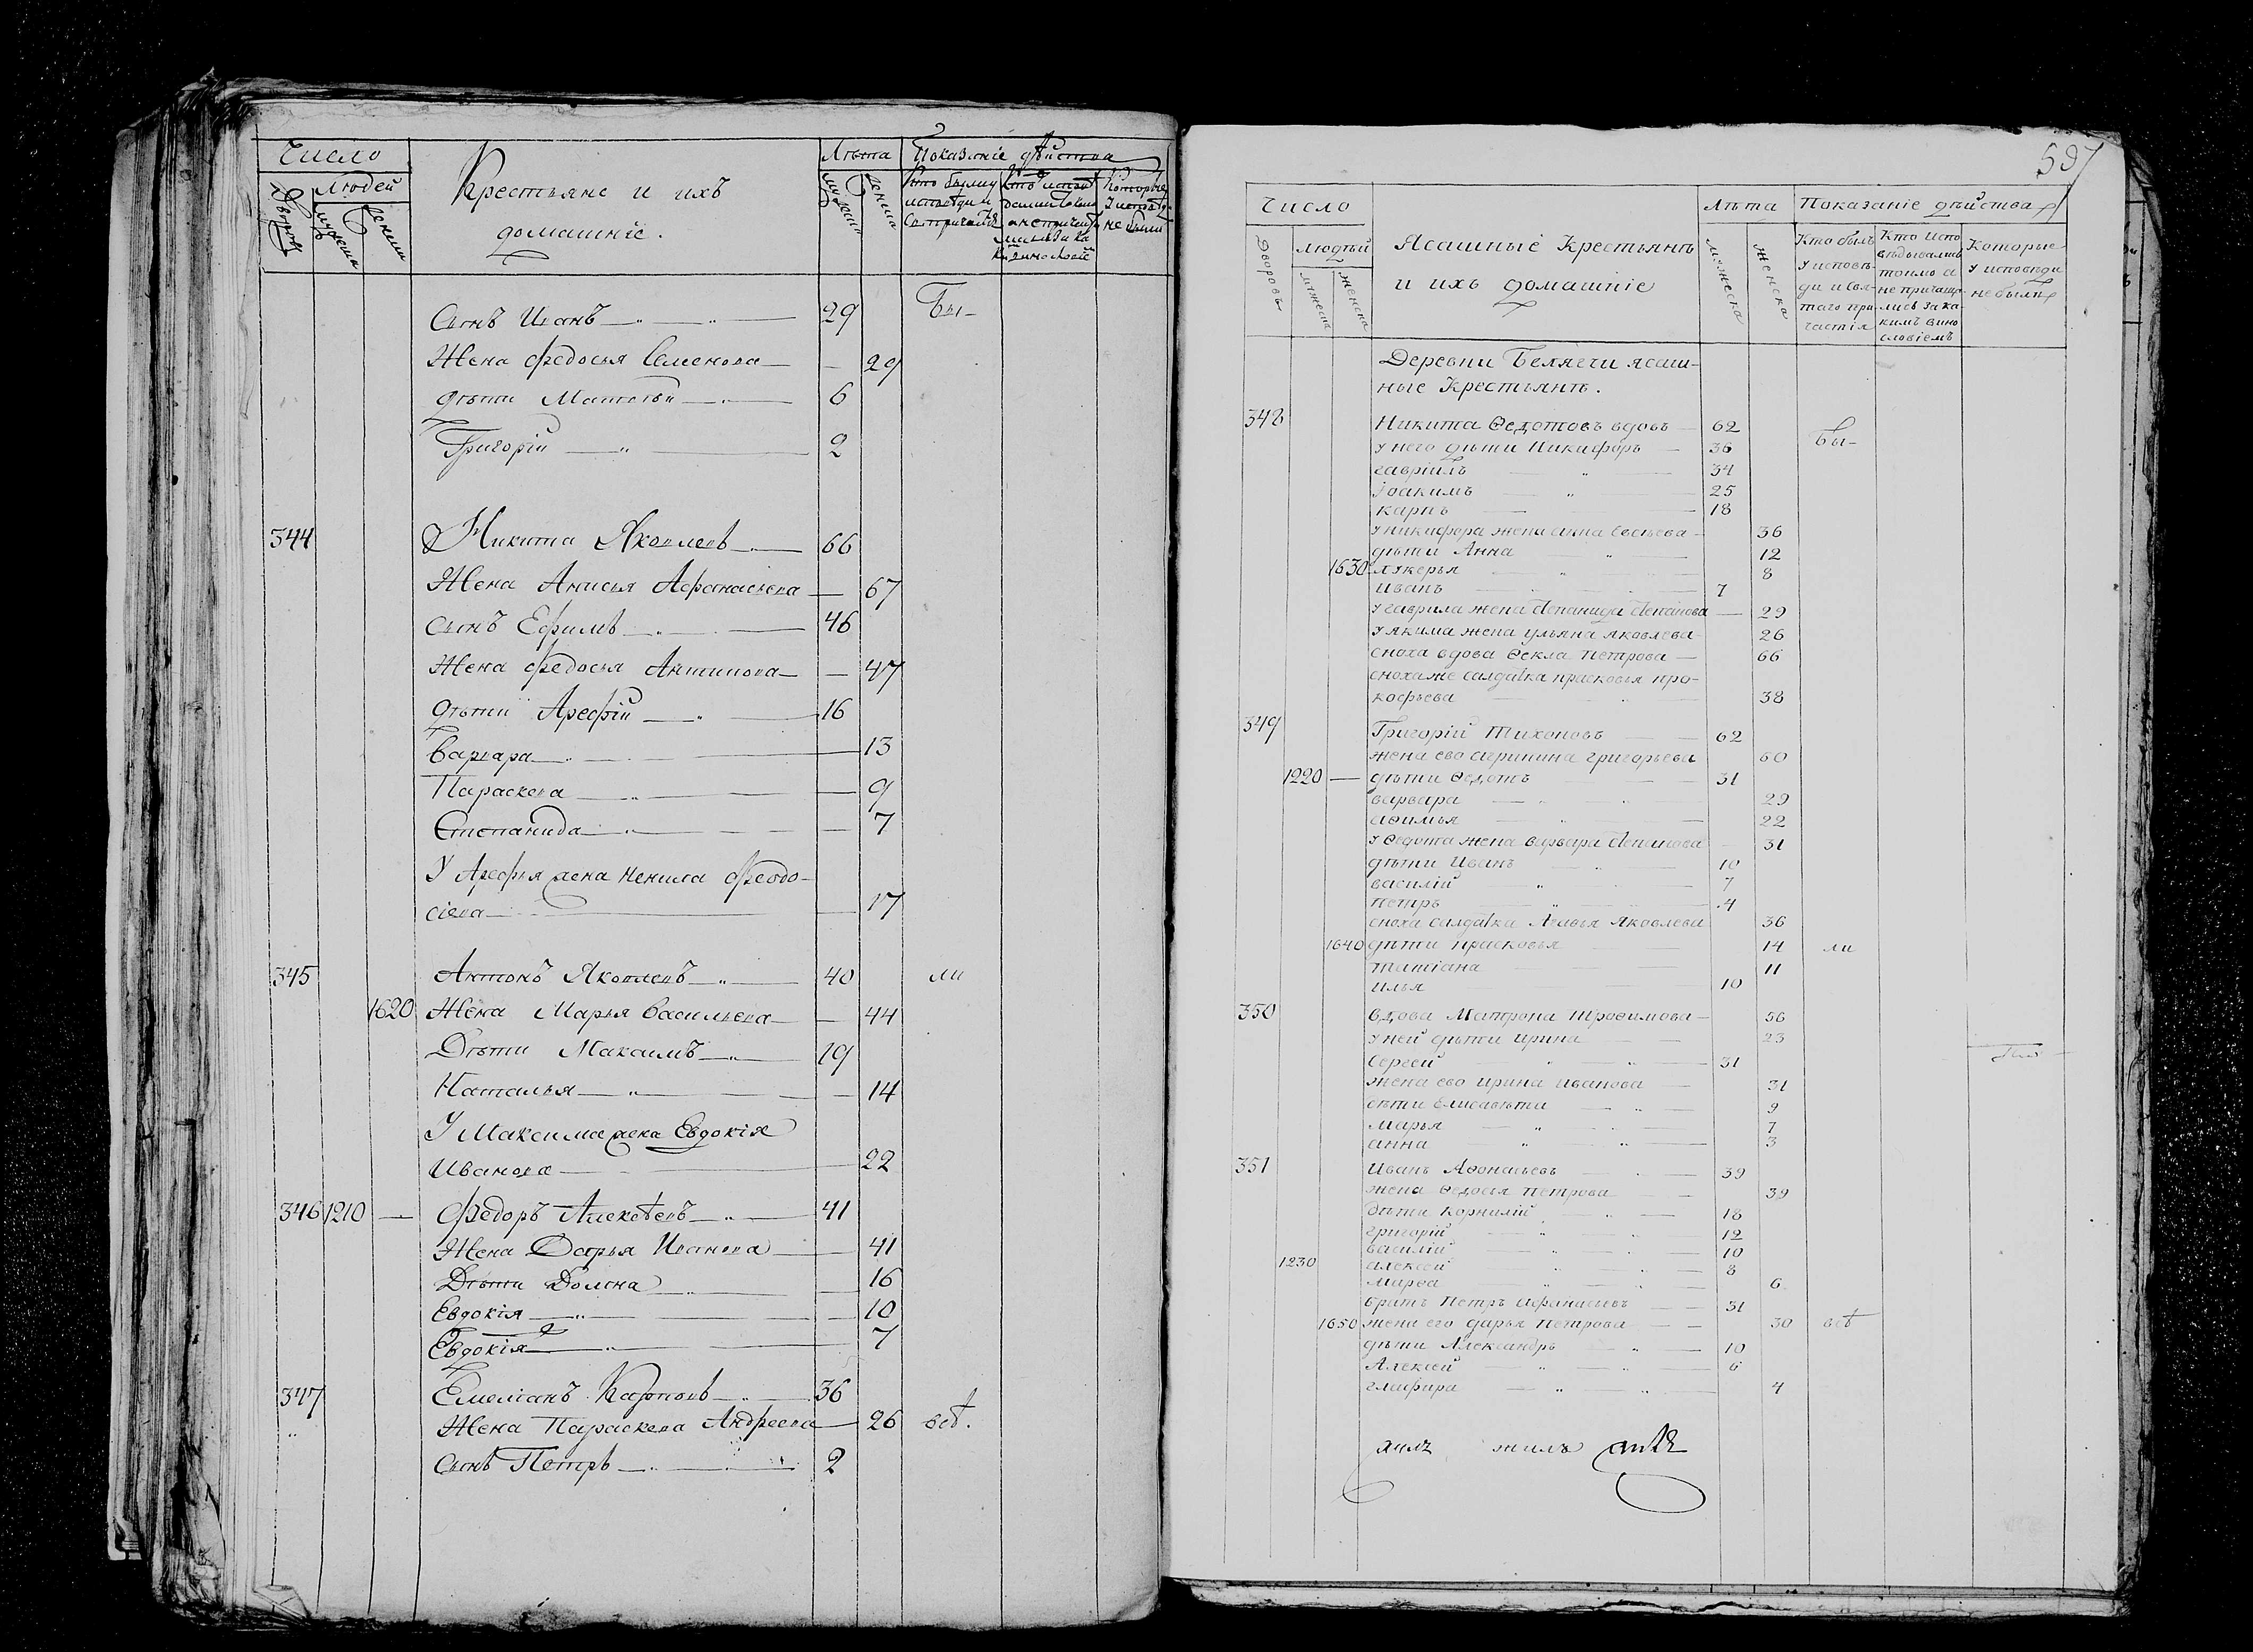 Число
Людей
Дворовъ
мужеска
женска
Крестьяне и ихъ
домашніе.
Лѣта
мужеска
женска
Показаніе дѣйства
Кто были у
исповѣди и
Которые
у исповѣди
не были
Сынъ Иванъ 29 Бы-
Жена Федосья Семенова 29
дѣти Матвѣй 6
Григорій 2
344 Никита Яковлевъ 66
Жена Анисья Афанасьева 67
сынъ Ефимъ 46
Жена Федосья Антипова 47
дѣти Арефій 16
Варвара 13
Параскева 9
Степанида 7
У Арефья жена Ненила Феодо-
сіева 17
345 Антонъ Яковлевъ 40 ли
1620 Жена Марья Васильева 44
Дѣти Максимъ 19
Наталья 14
У Максима жена Евдокія
Иванова 22
346 1210 Федоръ Алексѣевъ 41
Жена Дарья Иванова 41
Дѣти Домна 16
Евдокія 10
Евдокія 7
347 Емеліанъ Карповъ 36
Жена Параскева Андреева 26 всѣ.
Сынъ Петръ 2
597
Число
Дворовъ
людѣй
мужеска
женска
Ясашные Крестьянѣ
и ихъ домашніе
Лѣта
мужеска
женска
Показаніе дѣйства
Кто былъ
у исповѣ-
ди и свя-
таго при-
частія
Кто испо
вѣдывались
токмо а
не прича­ща-
лись за ка-
кимъ вино
словіемъ
Которые
у исповѣди
не были
Деревни Белягчи ясаш-
ные Крестьянѣ.
348 Никита Ѳедотовъ вдовъ 62
у него дѣти Никифоръ 36 бы-
гавріилъ 34
іоакимъ 25
карпъ 18
у никифора жена анна 36
дѣти Анна 12
1630 лукерья 8
иванъ 7
у гаврила жена степанида степанова 29
у якима жена ульяна яковлева 26
сноха вдова Ѳекла петрова 66
сноха же салдатка прасковья про-
кофьева 38
349 Григорій Тихоновъ 62
жена ево агрипина григорьева 60
1220 дѣти Ѳедотъ 31
варвара 29
аѳимья 22
у Ѳедота жена варвара степанова 31
дѣти Иванъ 10
василій 7
петръ 4
сноха салдатка Агавья Яковлева 36
1640 дѣти прасковья 14 ли
татіана 11
илья 10
350 вдова Матрона троѳимова 56
у ней дѣти ирина 23
сергей 31
жена ево ирина иванова 31
дѣти елисавѣта 9
марья 7
анна 3
351 Иванъ Аѳонасьевъ 39
жена Ѳедосья петрова 39
дѣти корнилій 18
григорій 12
василій 10
1230 алексей 8
марѳа 6
братъ петръ афанасьевъ 31
1650 жена его дарья петрова 30 всѣ
дѣти Александръ 10
Алексей 6
глафира 4